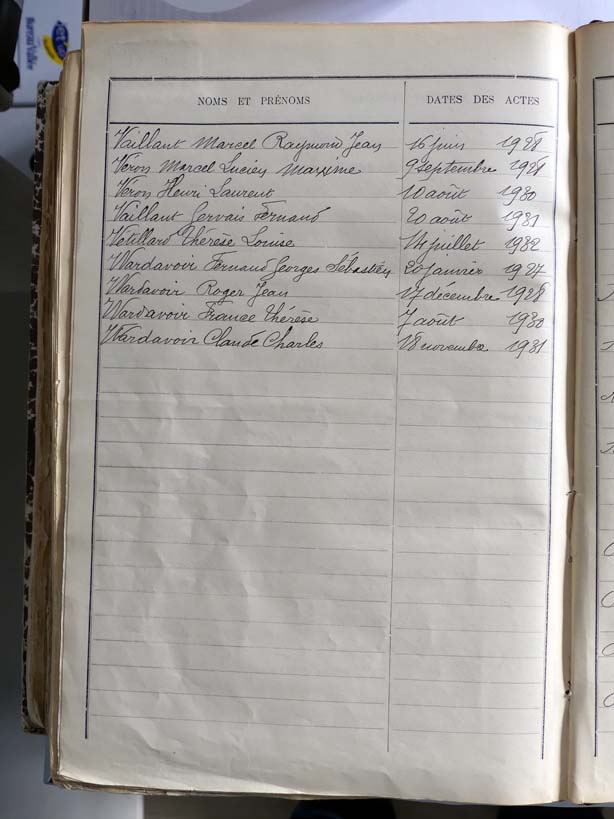 NOMS ET PRÉNOMS DATES DES ACTES
Vaillant Marcel Raymond Jean 16 juin 1928
Veron Marcel Lucien Maxime 9 septembre 1928
Veron Henri Laurent 10 août 1930
Vaillant Gervais Fernand 20 août 1931
Vetillard Thérèse Louise 14 juillet 1932
Wardavoir Fernand Georges Sébastien 20 janvier 1927
Wardavoir Roger Jean 17 décembre 1928
Wardavoir France Thérèse 7 août 1930
Wardavoir Claude Charles 18 novembre 1931